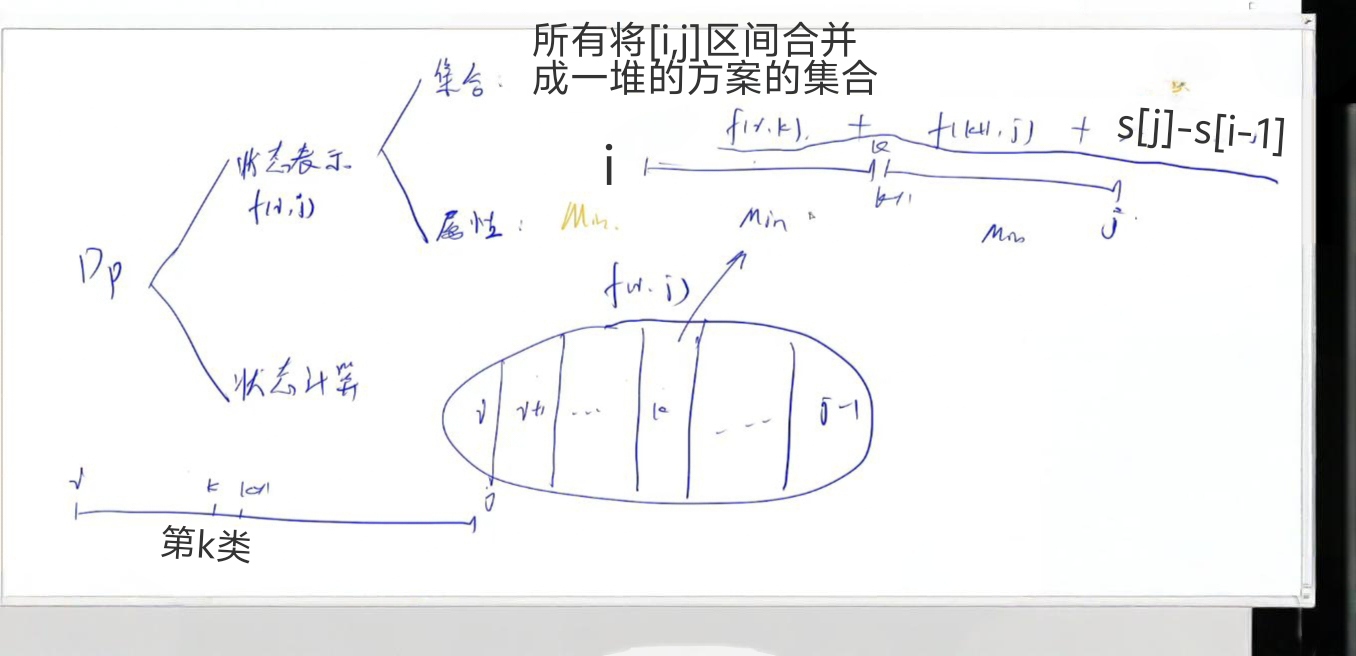 所有将[i,j]区间合并
成一堆的方案的集合
集合:
f(i,k) + f(k+1,j) + s[j]-s[i-1]
状态表示
i
k
k+1
f(i,j)
属性: Min.
Min
Min
j
DP
f(i.j)
状态计算
i i+1 ... k ... j-1
i k k+1
j
第k类